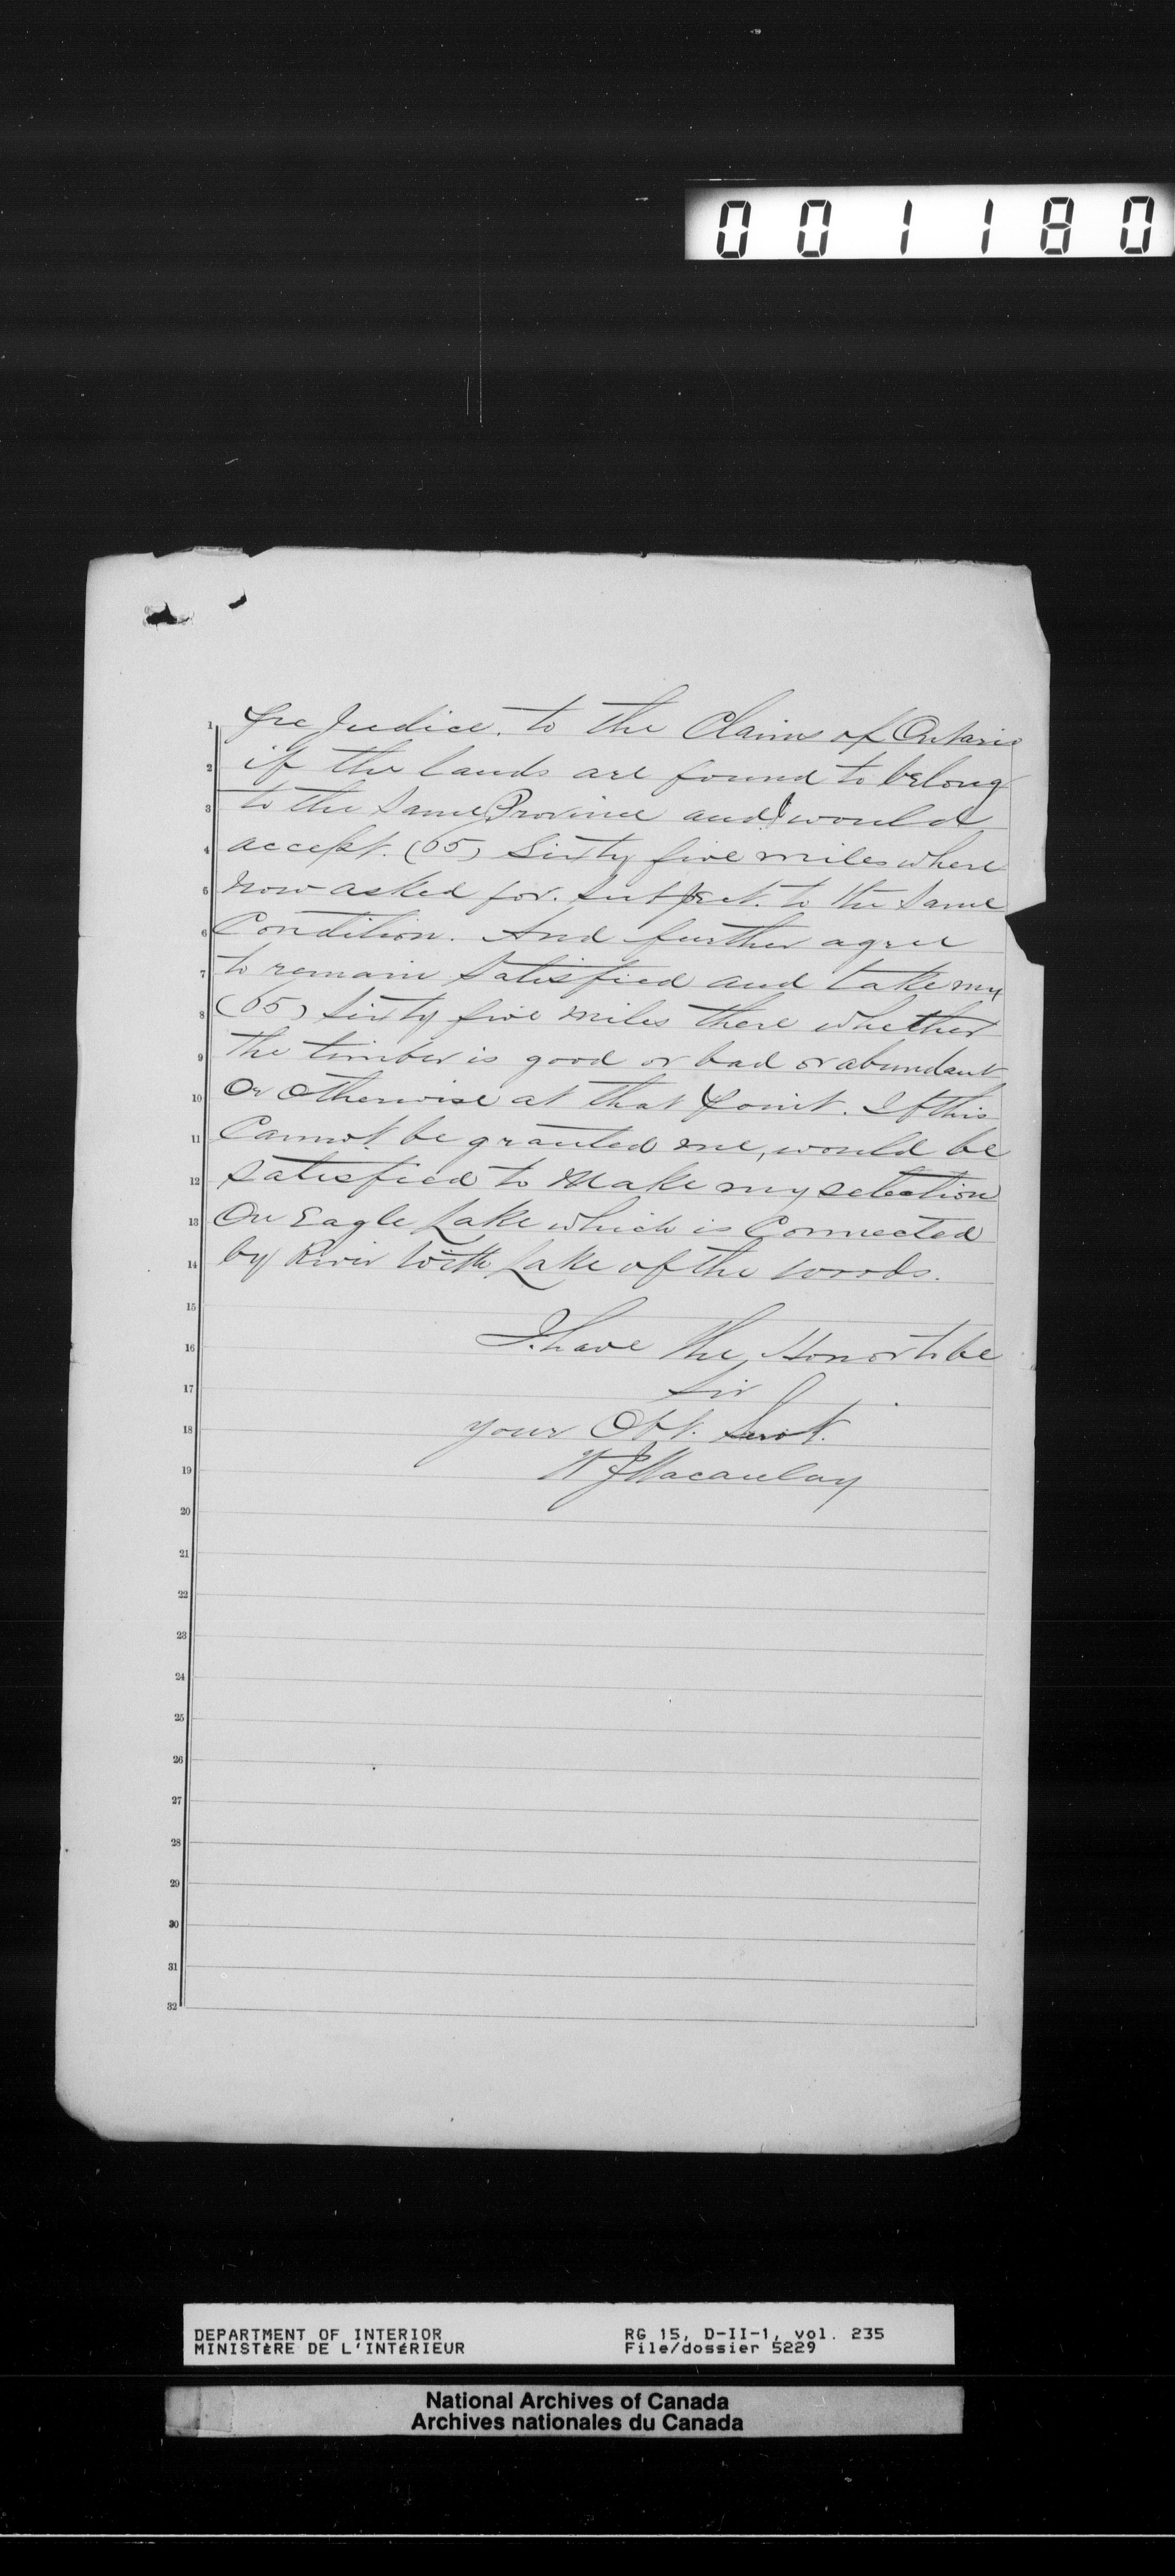 001180
1 Pre Judice. to the Claims of Ontario
2 if the lands are found to belong
3 to the Same Province and I would
4 accept. (65) Sixty five miles where
5 now asked for. Subject. to the Same
6 Condition. And further agree
7 to remain Satisfied and take my
8 (65) Sixty five miles there whether
9 the timber is good or bad or abundant
10 Or Otherwise at that Point. If this
11 Cannot be granted me, would be
12 Satisfied to Make my selection
13 On Eagle Lake which is Connected
14 by River with Lake of the woods.
15
16 I have the Honor to be
17 Sir
18 your Obt. Servt.
19 W J Macaulay
20
21
22
23
24
25
26
27
28
29
30
31
32
DEPARTMENT OF INTERIOR RG 15, D-II-1, vol. 235
MINISTÈRE DE L'INTÉRIEUR File/dossier 5229
National Archives of Canada
Archives nationales du Canada